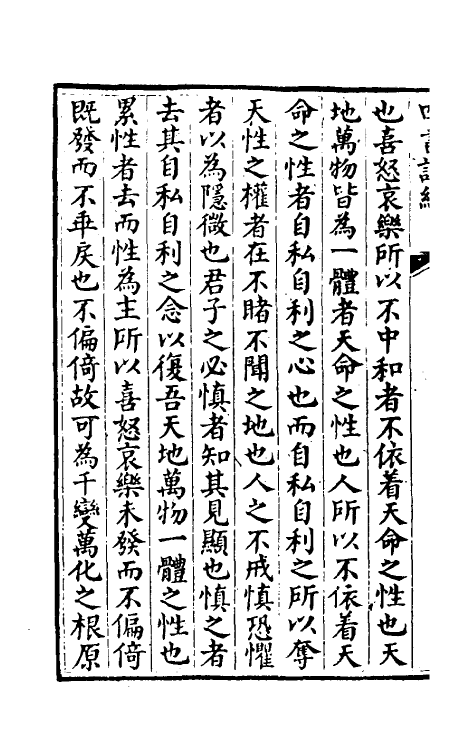 也喜怒哀樂所以不中和者不依着天命之性也天
地萬物皆為一體者天命之性也人所以不依着天
命之性者自私自利之心也而自私自利之所以奪
天性之權者在不睹不聞之地也人之不戒慎恐懼
者以為隱微也君子之必慎者知其見顯也慎之者
去其自私自利之念以復吾天地萬物一體之性也
累性者去而性為主所以喜怒哀樂未發而不偏倚
既發而不乖戾也不偏倚故可為千變萬化之根原